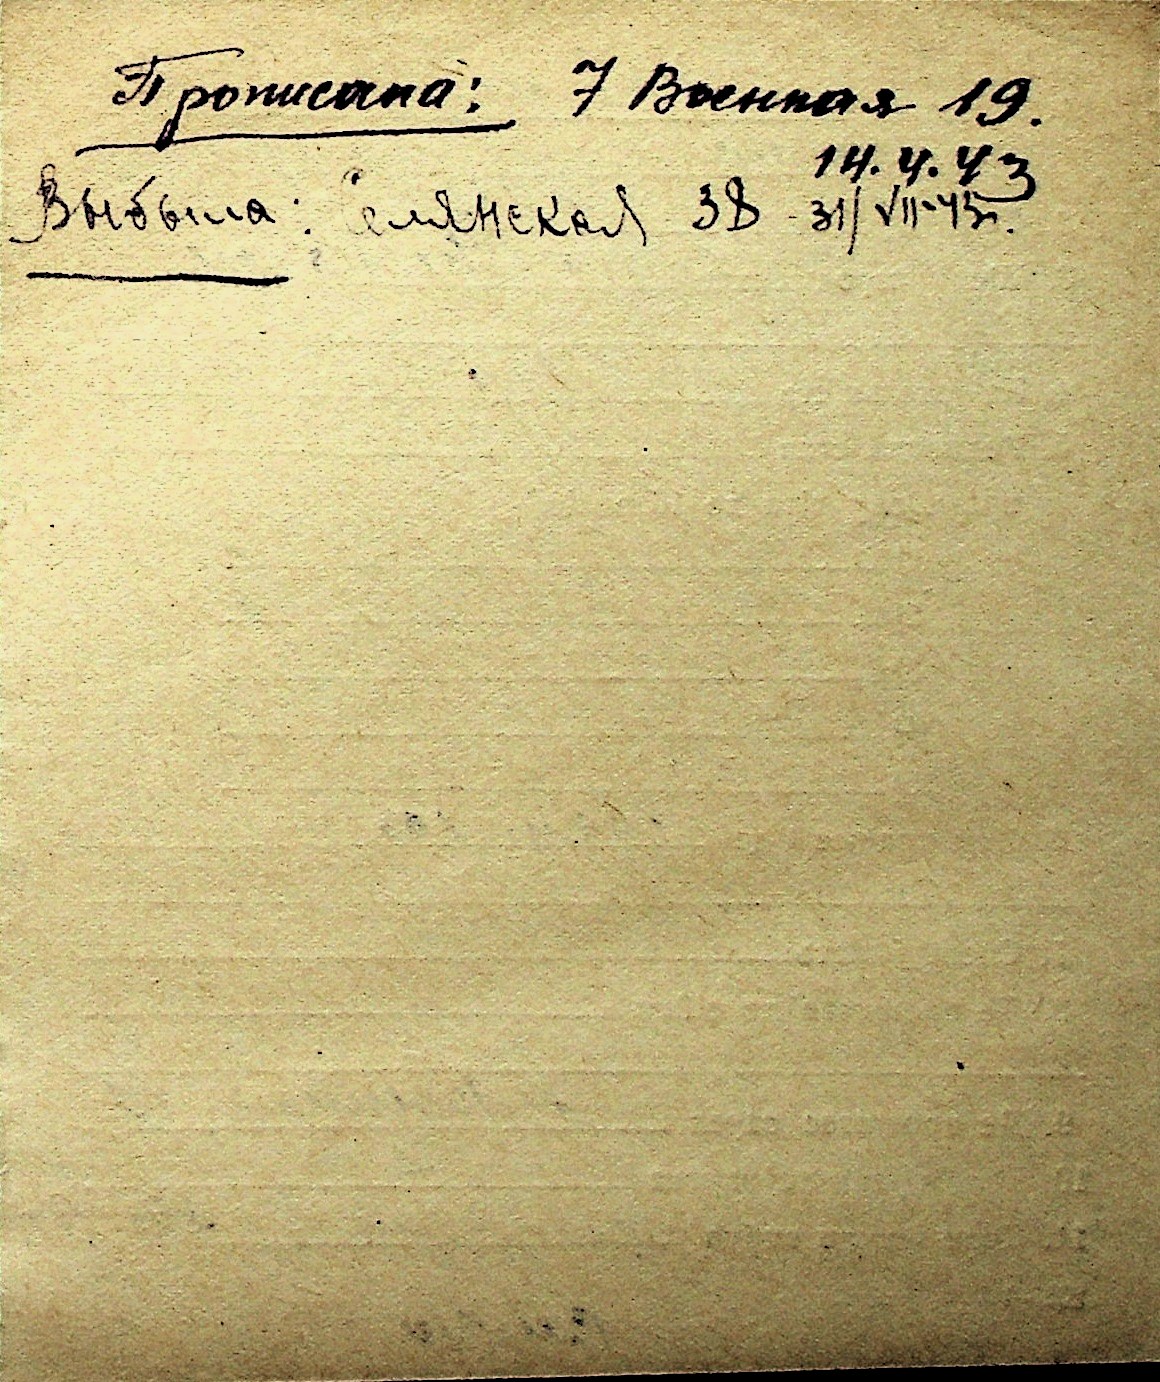 Прописана: 7 Военная 19.
14.4.43
Выбыла: Селянская 38 31/VII-43г.